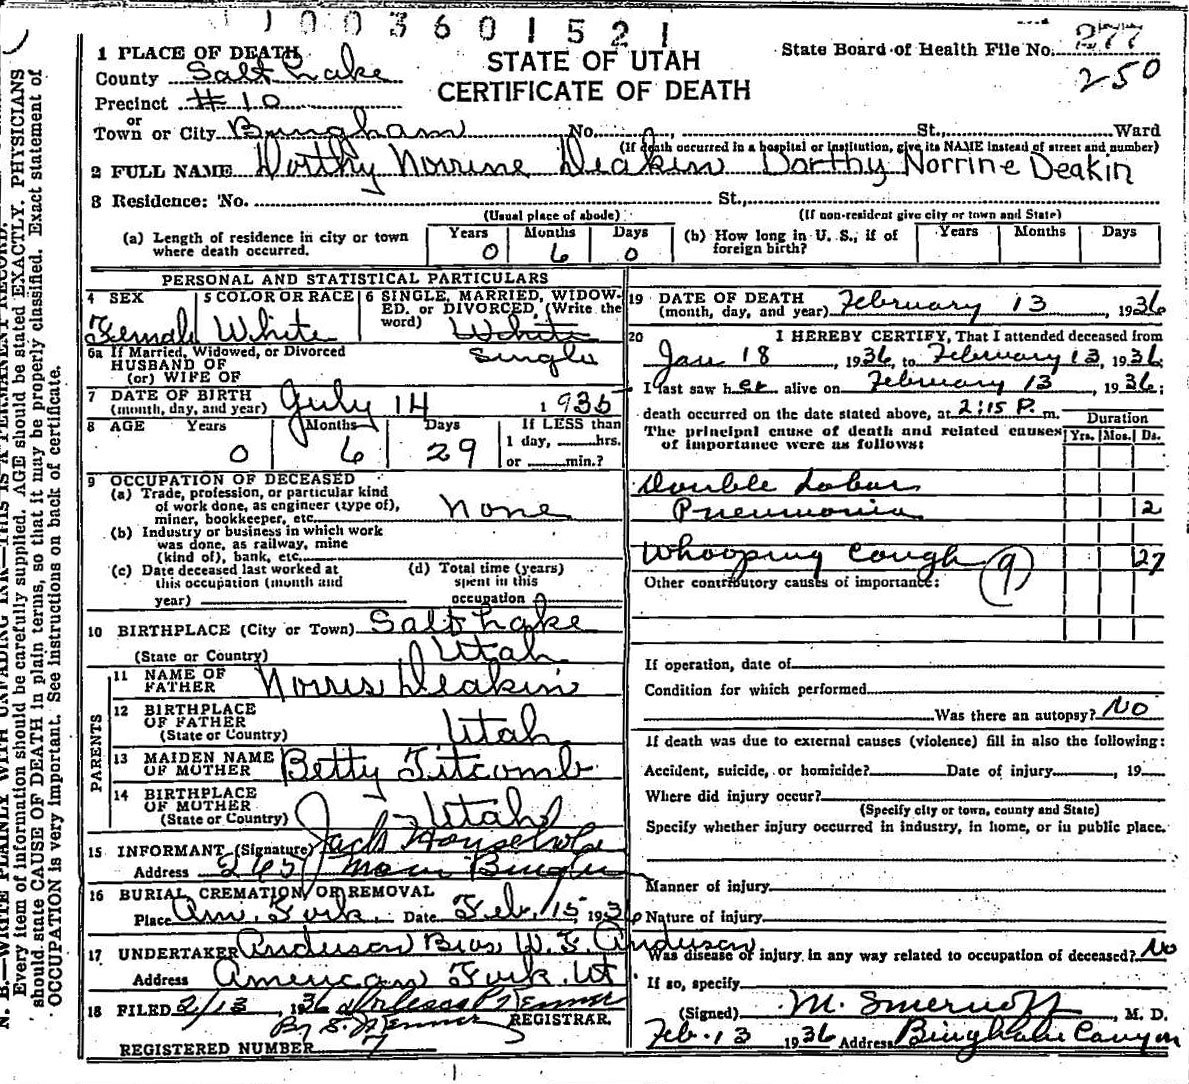 1003601521
1 PLACE OF DEATH
STATE OF UTAH
CERTIFICATE OF DEATH
State Board of Health File No. 277
250
County Salt Lake
Precinct #10
or
Town or City Bingham No. , St., Ward
(If death occurred in a hospital or institution, give its NAME instead of street and number)
2 FULL NAME Dorthy Norrine Deakin Dorthy Norrine Deakin
3 Residence: No. St.,
(Usual place of abode) (If non-resident give city or town and State)
(a) Length of residence in city or town where death occurred. Years 0 Months 6 Days 0
(b) How long in U. S., if of foreign birth? Years Months Days
PERSONAL AND STATISTICAL PARTICULARS
4 SEX Female
5 COLOR OR RACE White
6 SINGLE, MARRIED, WIDOWED. or DIVORCED, (Write the word) White Single
6a If Married, Widowed, or Divorced
HUSBAND OF
(or) WIFE OF
7 DATE OF BIRTH (month, day, and year) July 14 1935
8 AGE Years 0 Months 6 Days 29 If LESS than 1 day, hrs. or min.?
9 OCCUPATION OF DECEASED
(a) Trade, profession, or particular kind of work done, as engineer (type of), miner, bookkeeper, etc. None
(b) Industry or business in which work was done, as railway, mine (kind of), bank, etc.
(c) Date deceased last worked at this occupation (month and year)
(d) Total time (years) spent in this occupation
10 BIRTHPLACE (City or Town) Salt Lake
(State or Country) Utah
PARENTS
11 NAME OF FATHER Norris Deakin
12 BIRTHPLACE OF FATHER (State or Country) Utah
13 MAIDEN NAME OF MOTHER Betty Titcomb
14 BIRTHPLACE OF MOTHER (State or Country) Utah
15 INFORMANT (Signature) Jack
Address 265 Main
16 BURIAL, CREMATION, OR REMOVAL
Place Am. Fork Date Feb. 15 1936
17 UNDERTAKER Anderson Bros W. F. Anderson
Address American Fork. Ut
18 FILED 2/13, 1936
REGISTRAR.
REGISTERED NUMBER 7
19 DATE OF DEATH (month, day, and year) February 13, 1936
20 I HEREBY CERTIFY, That I attended deceased from
Jan 18, 1936, to February 13, 1936;
I last saw her alive on February 13, 1936;
death occurred on the date stated above, at 2:15 P. m.
The principal cause of death and related causes of importance were as follows:
Duration
Yrs. Mos. Ds.
Double Lobar
Pneumonia 2
Whooping Cough (9) 27
Other contributory causes of importance:
If operation, date of
Condition for which performed
Was there an autopsy? No
If death was due to external causes (violence) fill in also the following:
Accident, suicide, or homicide? Date of injury , 19
Where did injury occur?
(Specify city or town, county and State)
Specify whether injury occurred in industry, in home, or in public place.
Manner of injury
Nature of injury
Was disease or injury in any way related to occupation of deceased? No
If so, specify
(Signed) M. Smernoff, M. D.
Feb. 13 1936 Address Bingham Canyon
N. B.—WRITE PLAINLY WITH UNFADING INK—THIS IS A PERMANENT RECORD.
Every item of information should be carefully supplied. AGE should be stated EXACTLY. PHYSICIANS
should state CAUSE OF DEATH in plain terms, so that it may be properly classified. Exact statement of
OCCUPATION is very important. See instructions on back of certificate.